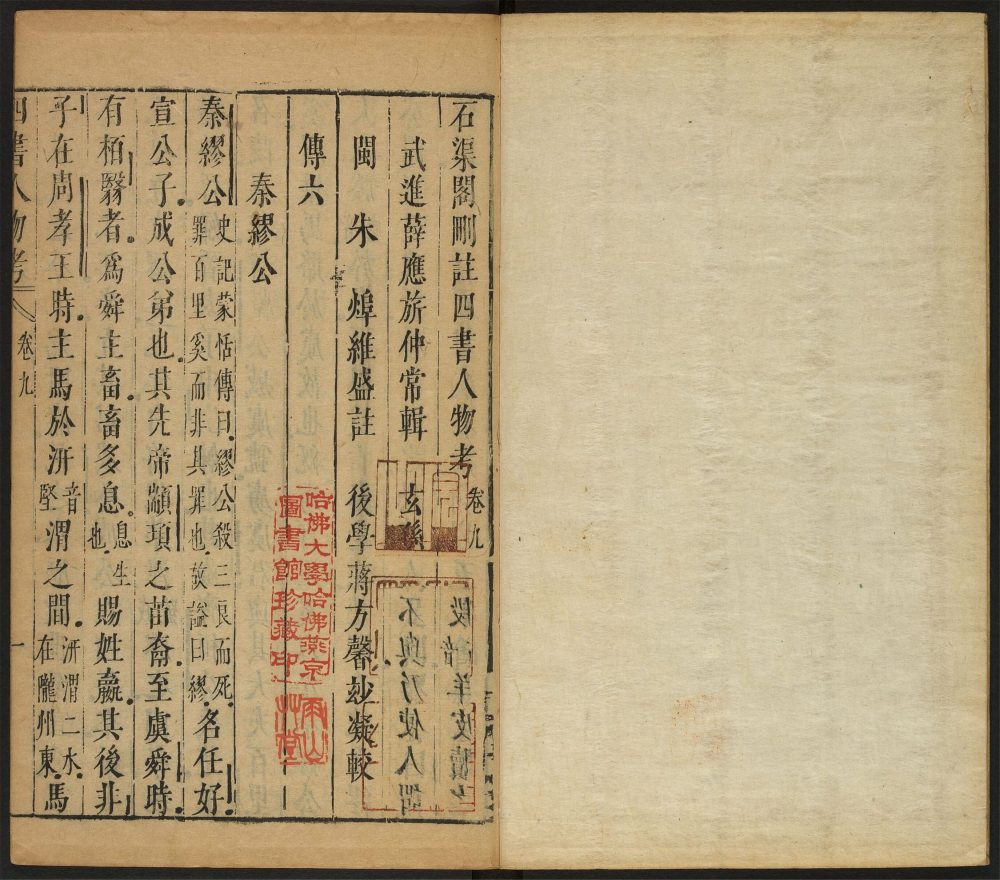 石渠閣刪註四書人物考 卷九
武進薛應旂仲常輯 玄孫
閩 朱 焯維盛註 後學蔣方馨玅凝較
傳六
秦繆公
秦繆公 史記蒙恬傳曰繆公殺三良而死 罪百里奚而非其罪也故謚曰繆 名任好
宣公子成公弟也其先帝顓頊之苗裔至虞舜時
有栢翳者爲舜主畜畜多息 息生也 賜姓嬴其後非
子在周孝王時主馬於汧 音堅 渭之間 汧渭二水在隴州東 馬
四書人物考 卷九 一
哈佛大學哈佛燕京
圖書館珍藏印